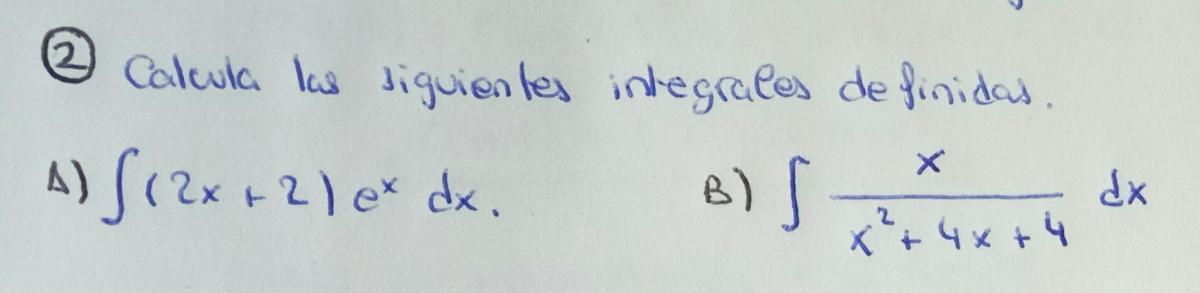 ② Calcula las siguientes integrales definidas.
A) ∫(2x + 2) eˣ dx. B) ∫ x / (x² + 4x + 4) dx